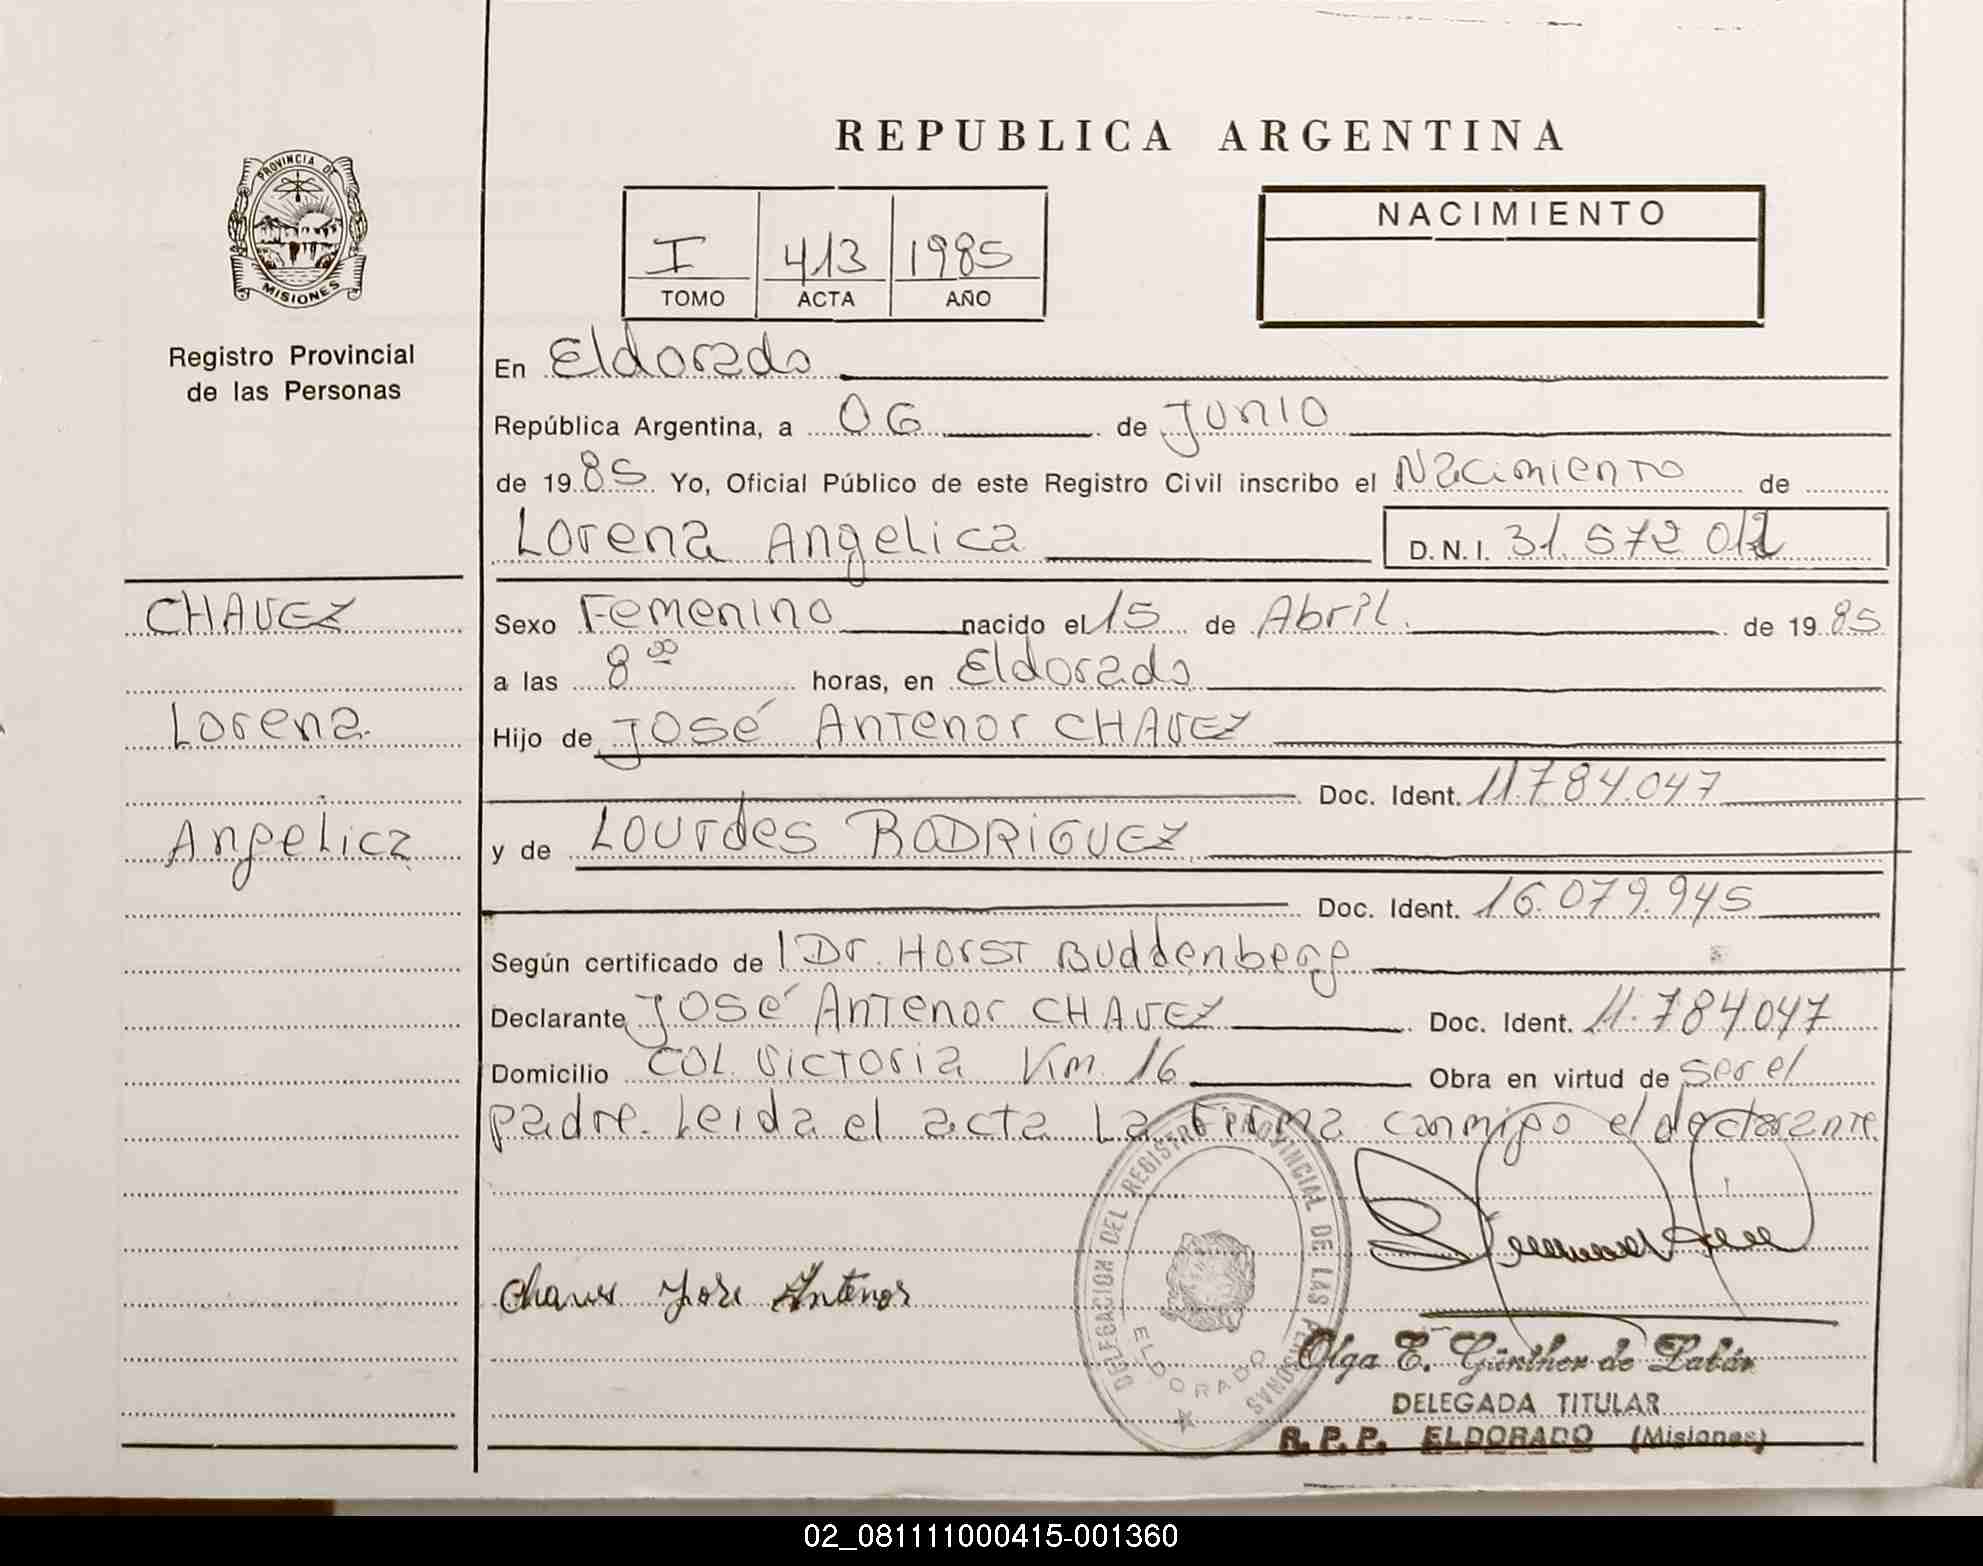 REPUBLICA ARGENTINA
PROVINCIA DE
MISIONES
Registro Provincial
de las Personas
I 413 1985
TOMO ACTA AÑO
NACIMIENTO
En Eldorado
República Argentina, a 06 de Junio
de 1985 Yo, Oficial Público de este Registro Civil inscribo el Nacimiento de
Lorena Angelica D.N.I. 31.572
CHAVEZ
Lorena
Angelica
Sexo Femenino nacido el 15 de Abril de 1985
a las 8 00 horas, en Eldorado
Hijo de José Antenor CHAVEZ
Doc. Ident. 11.784.047
y de Lourdes RODRIGUEZ
Doc. Ident. 16.079.945
Según certificado de Dr. Horst Buddenberg
Declarante José Antenor CHAVEZ Doc. Ident. 11.784.047
Domicilio COL. Victoria Km. 16 Obra en virtud de ser el
padre. Leida el acta La Firma conmigo el declarante
DELEGACION DEL REGISTRO PROVINCIAL DE LAS PERSONAS
ELDORADO
Chaves Jose Antenor
Olga E. Günther de
DELEGADA TITULAR
R. P. P. ELDORADO (Misiones)
02_081111000415-001360